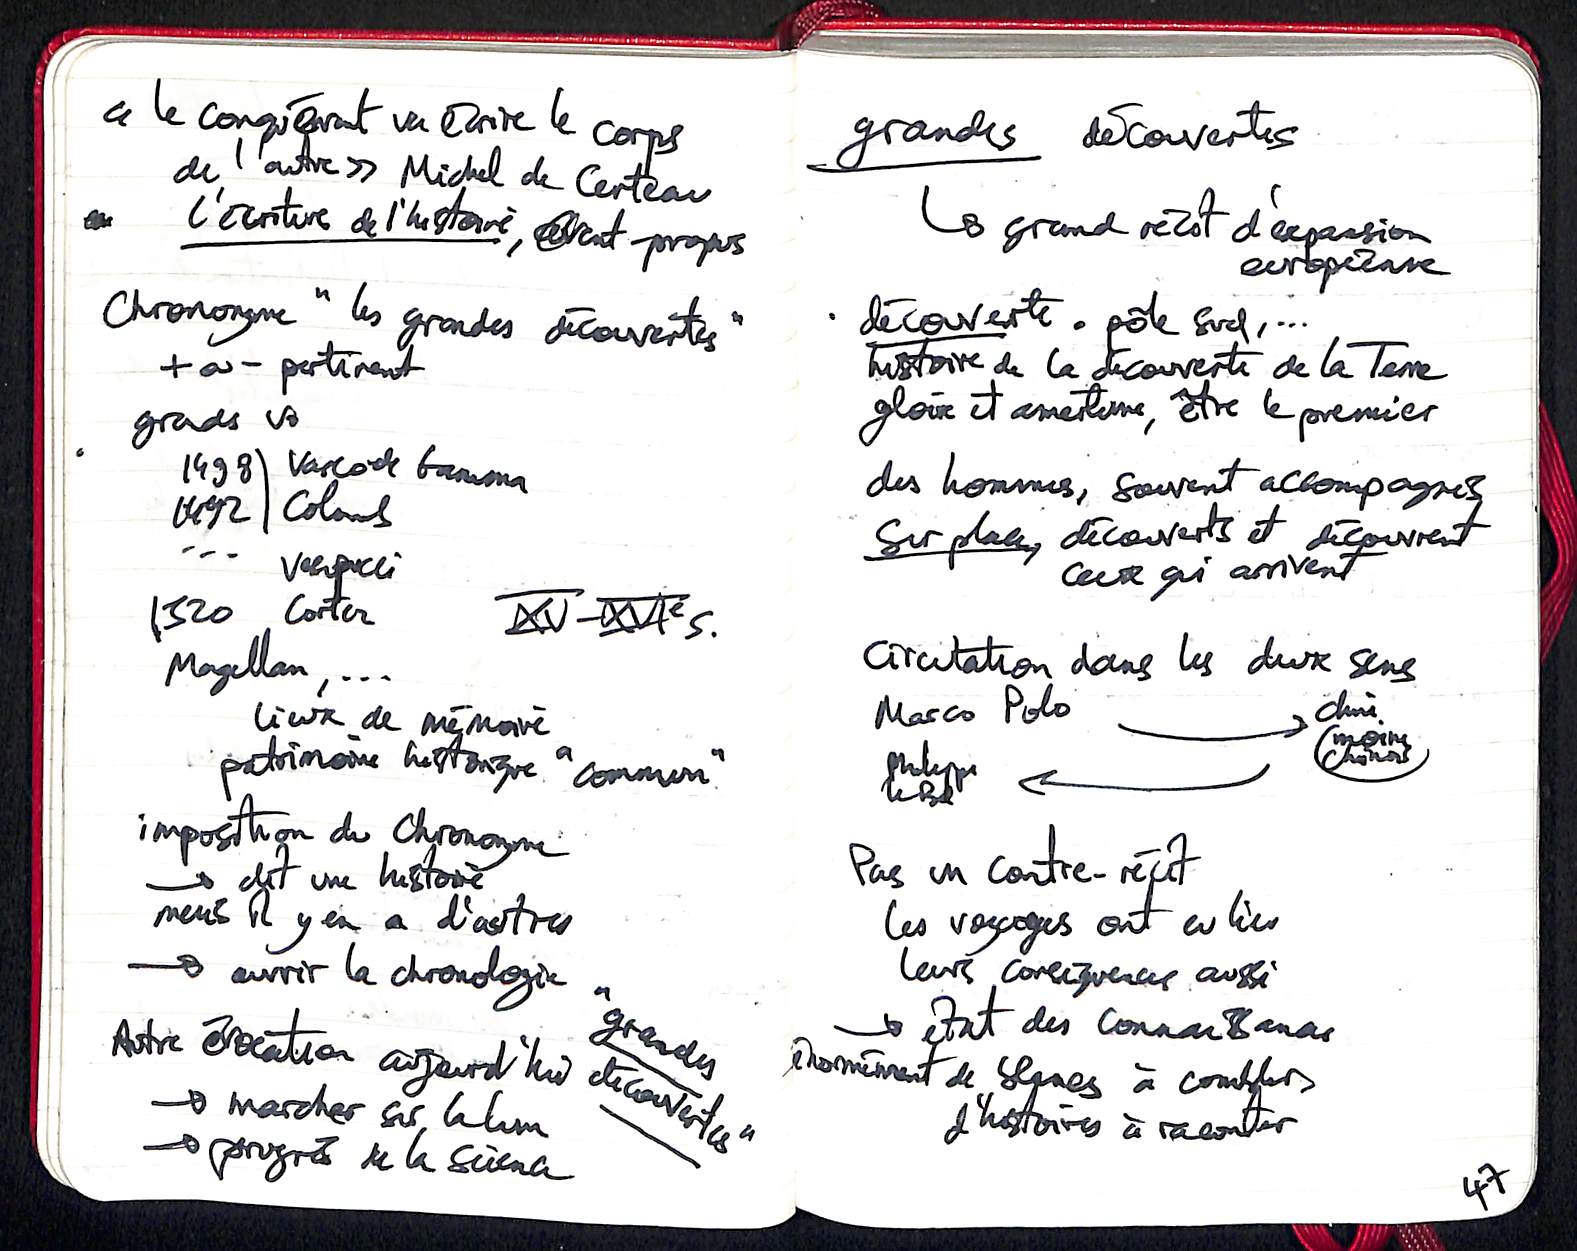 « le conquérant va écrire le corps
de l'autre » Michel de Certeau
L'écriture de l'histoire, avant-propos
Chrononyme " les grandes découvertes "
+ ou - pertinent
grands
1498 Vasco de Gamma
1492 Colomb
--- Vespucci
1520 Cortez XV-XVIe s.
Magellan, ...
lieux de mémoire
patrimoine historique "commun"
imposition du Chrononyme
→ dit une histoire
mais il y en a d'autres
→ ouvrir la chronologie
Autre évocation aujourd'hui "grandes
découvertes"
→ marcher sur la lune
→ progrès de la science
grandes découvertes
↳ grand récit d'expansion
européenne
. découverte . pôle sud, ...
histoire de la découverte de la Terre
gloire et amertume, être le premier
des hommes, souvent accompagnés
sur place, découverts et découvrent
ceux qui arrivent
Circulation dans les deux sens
Marco Polo → Chine
moine
chinois
Philippe
le Bel ←
Pas un contre-récit
les voyages ont eu lieu
leurs conséquences aussi
→ état des connaissances
énormément de blancs à combler
d'histoires à raconter
47